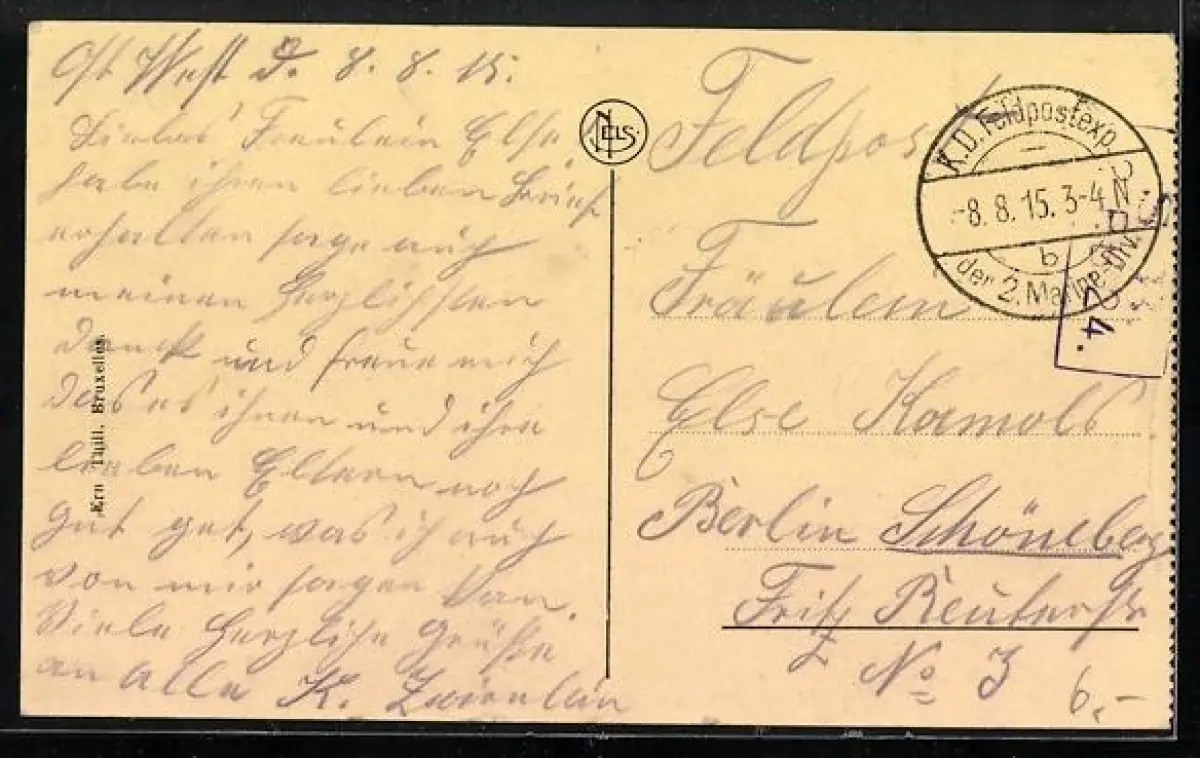 Ost West d. 8. 8. 15.
Liebes Fräulein Else
habe ihren lieben Brief
erhalten sage auch
meinen herzlichsten
Dank und freue mich
das es ihnen und ihre
lieben Eltern noch
gut get, was ich auch
von mir sagen kan.
Viele Herzliche Grüße
an alle K.
Ern. Thill, Bruxelles.
NELS
Feldpost
K.D. Feldpostexp.
-8. 8. 15. 3-4 N
b
der 2. Marine-Div.
4.
Fräulein
Else Kamols
Berlin Schöneberg
Fritz Reuterstr
No 3
6,-